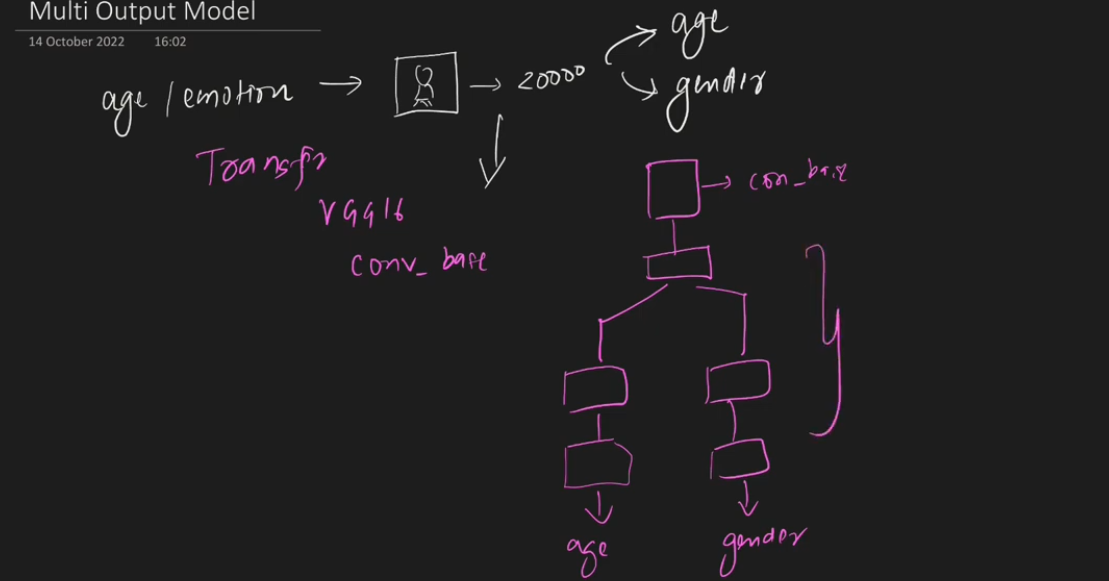 Multi Output Model
14 October 2022 16:02
age
age / emotion → → 20000
gender
Transfr
VGG16
conv_base
con_base
age
gender